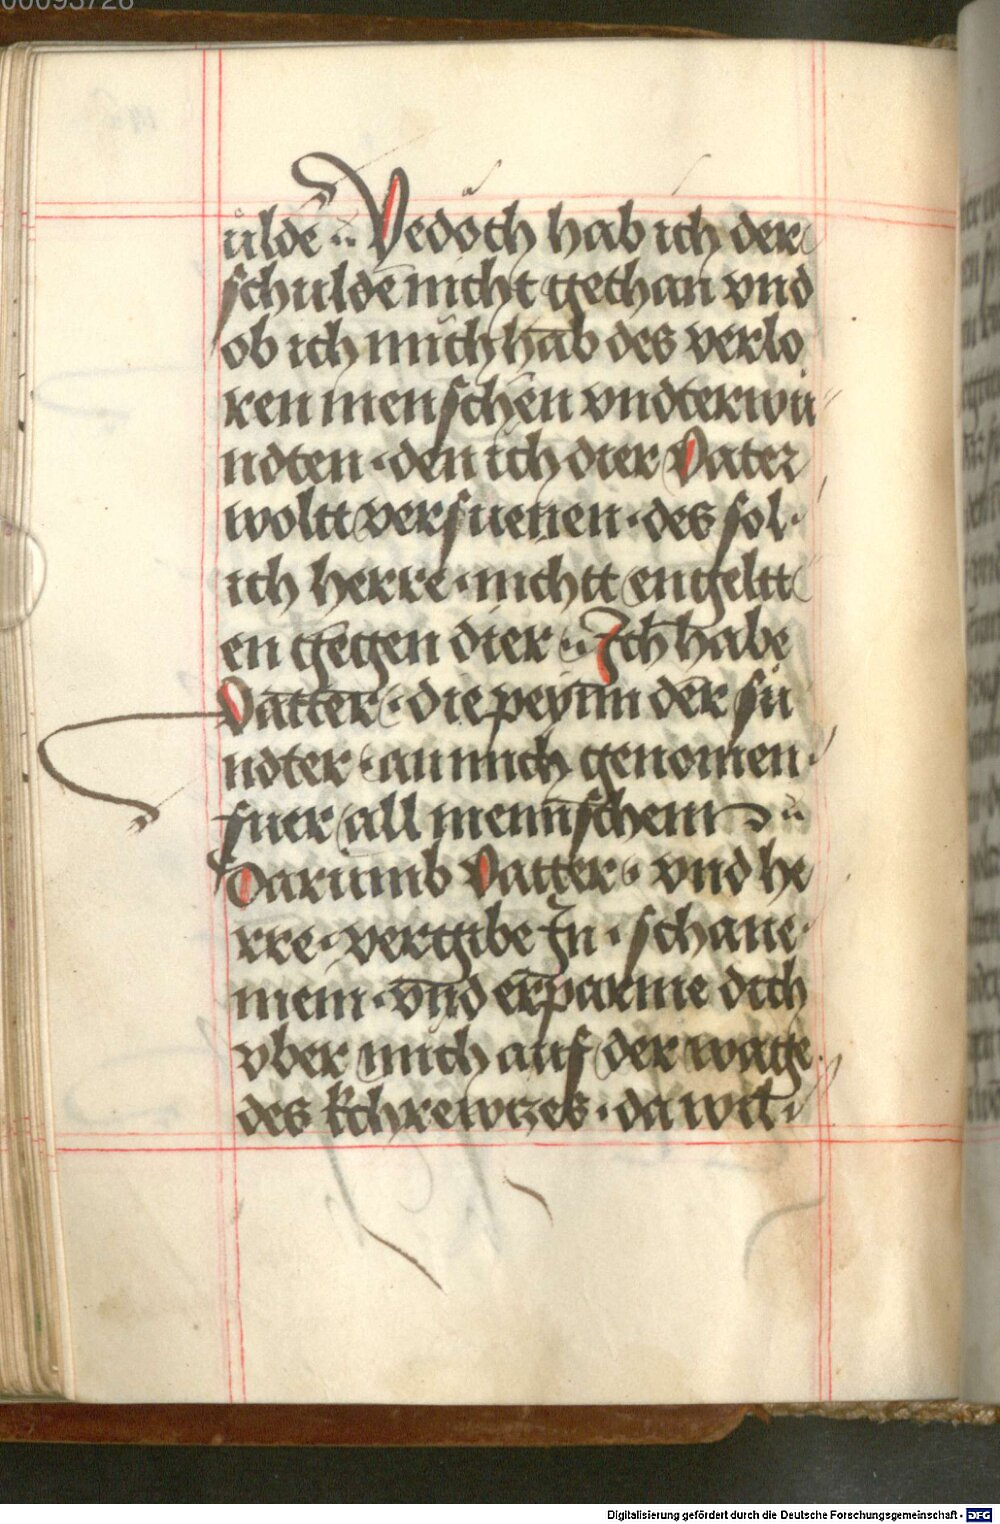 00093726
uldē ·:· Yedoch hab ich der
schuldē nicht gethan vnd
ob ich mich hab des verlo
ren menschen vndterwu
ndten · den ich dier Vater
woltt versuenen · des sol ·
ich herre · nichtt engeltt
en gegen dier ·:· Ich habe
Vatter · die peynn der su
ndter · an mich genomen ·
fuer all mennschenn ·:·
Darumb Vatter · vnd he
rre · vergibe In · schaue ·
mein · vnd erparme dich
vber mich auf der wage
des kchrewczes · da wil ·
Digitalisierung gefördert durch die Deutsche Forschungsgemeinschaft - DFG